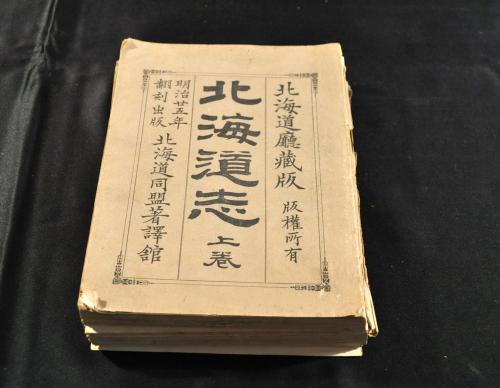 北海道廳藏版 版權所有
北海道志 上巻
明治廿五年
翻刻出版
北海道同盟著譯舘